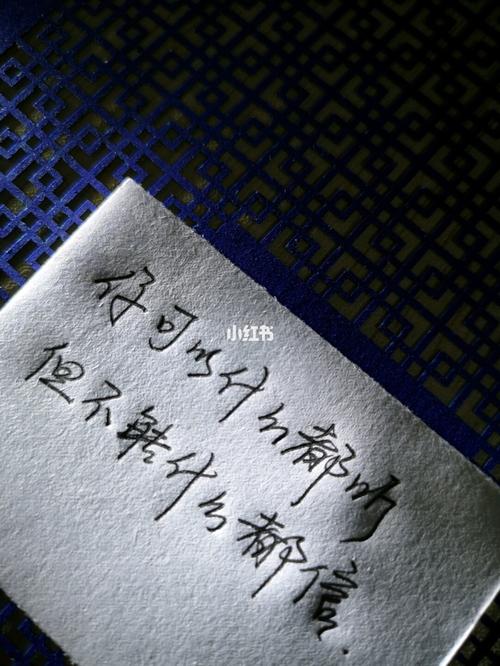 你可以什么都听
但不能什么都信.
小红书